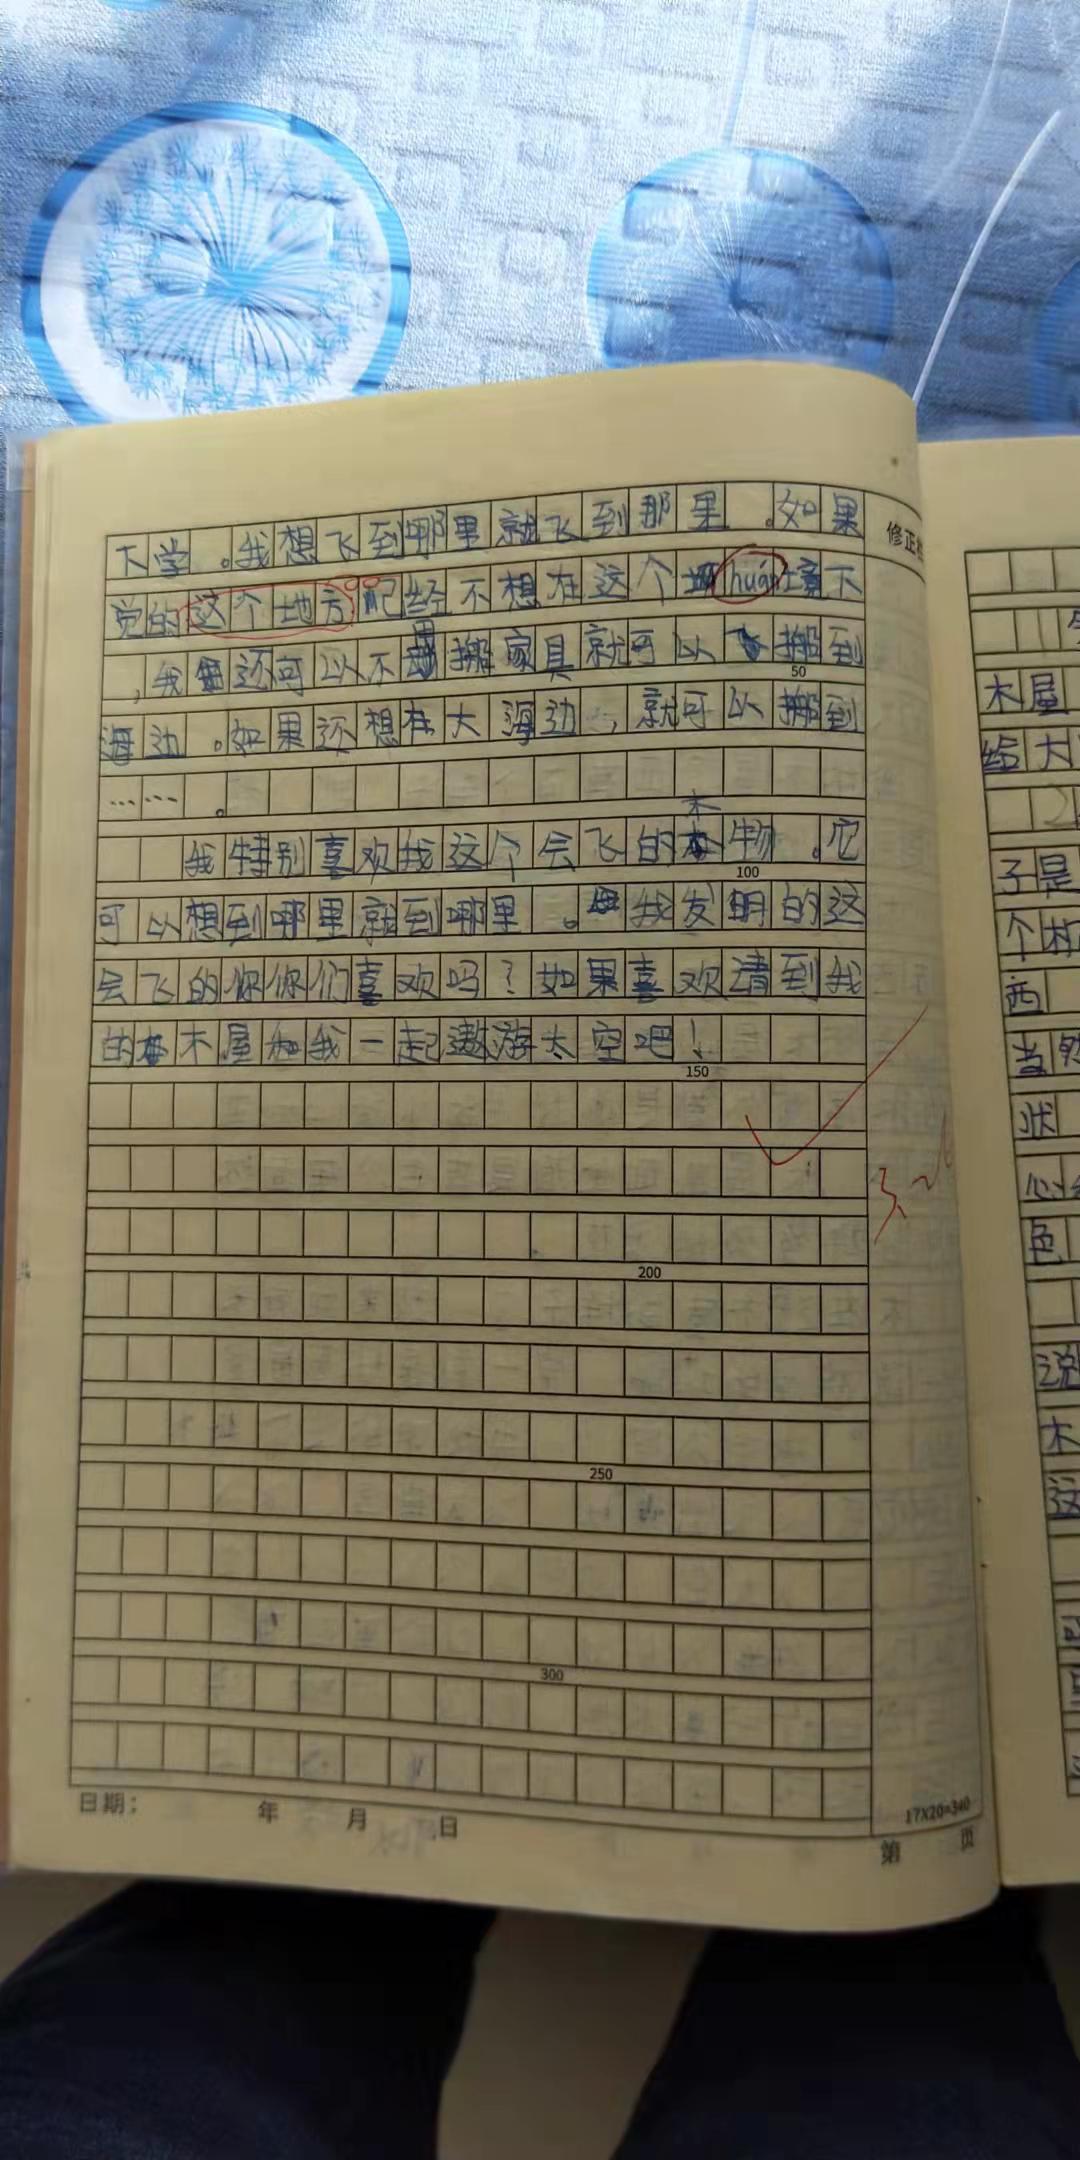 下学。我想飞到哪里就飞到那里。如果
觉的这个地方 经不想在这个 huán境下
,我 还可以不用搬家具就可以 搬到
海边。如果还想在大海边,就可以搬到
…… 。
我特别喜欢我这个会飞的木物。它
可以想到哪里就到哪里。 我发明的这
会飞的你你们喜欢吗?如果喜欢请到我
的 木屋和我一起遨游太空吧!
50
100
150
200
250
300
日期: 年 月 日
修正
3.
17X20=340
第 页
木屋
给大
子是
个木
西
当然
状
心
色
说
木
这